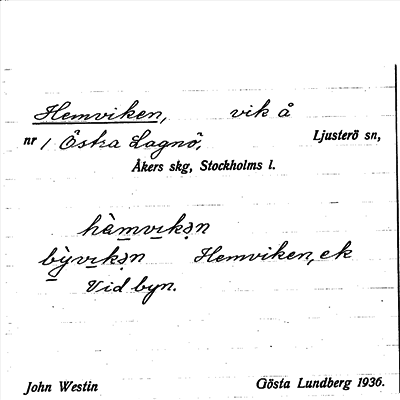 Hemviken, vik å
nr 1 Östra Lagnö, Ljusterö sn,
Åkers skg, Stockholms l.
hàmvıkən
bỳvıkən Hemviken, ek
Vid byn.
John Westin Gösta Lundberg 1936.